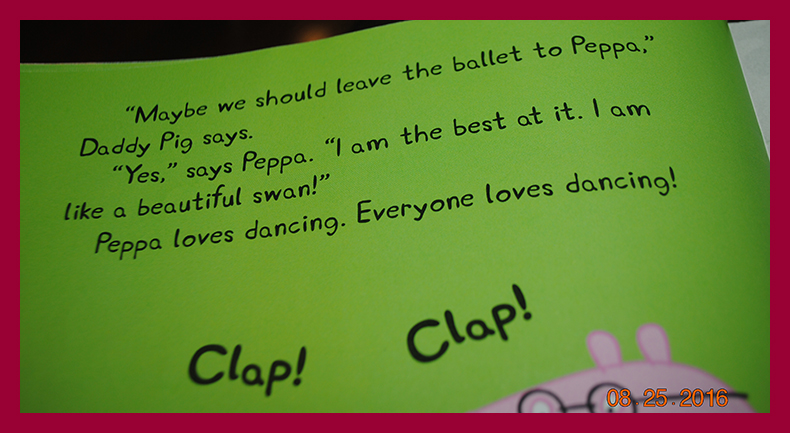 “Maybe we should leave the ballet to Peppa,”
Daddy Pig says.
“Yes,” says Peppa. “I am the best at it. I am
like a beautiful swan!”
Peppa loves dancing. Everyone loves dancing!
Clap!
Clap!
08.25.2016